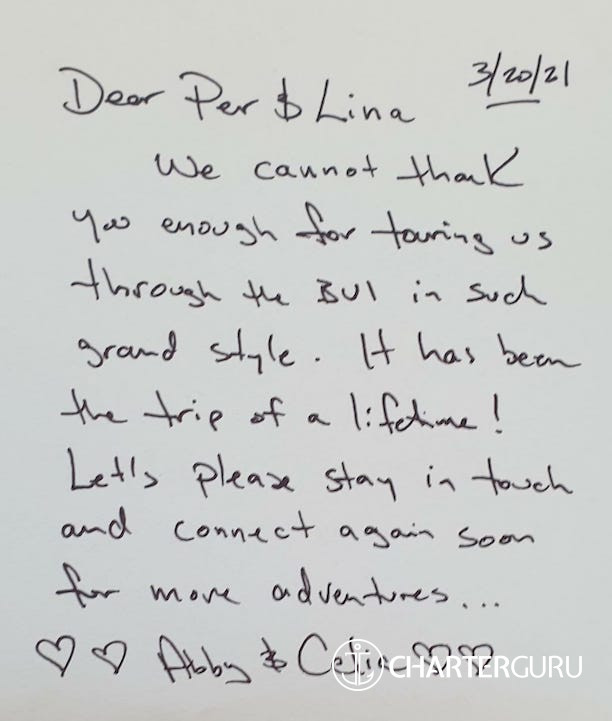 3/20/21
Dear Per & Lina
We cannot thank
you enough for touring us
through the BVI in such
grand style. It has been
the trip of a lifetime!
Let's please stay in touch
and connect again soon
for more adventures...
♡ ♡ Abby & ♡♡
CHARTERGURU